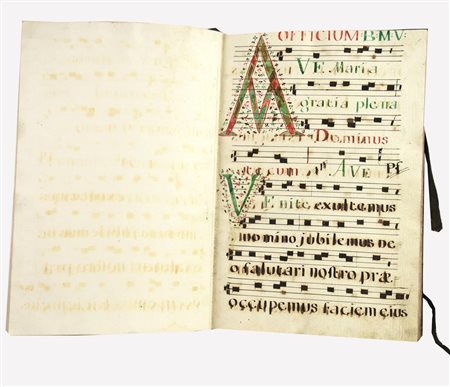 OFFICIUM·B·M·V·
AVE Maria
gratia plena
Dominus
te cum AVE Ps
VEnite exultemus
Domino jubilemus De
o salutari nostro præ
occupemus faciem eius